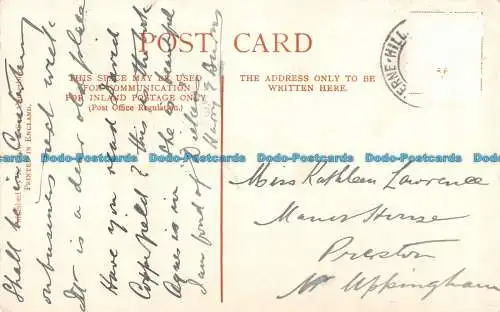 POST CARD
THIS SPACE MAY BE USED
FOR COMMUNICATION
FOR INLAND POSTAGE ONLY
(Post Office Regulation.)
THE ADDRESS ONLY TO BE
WRITTEN HERE.
ERNE·HILL
PRINTED IN ENGLAND.
Shall be in Canterbury
on business next week.
It is a dear old place
Have you read David
Copperfield? this is the
Agnes is in. She is
I am fond of Dickens
Harry
Miss Kathleen Lawrence
Manor House
Preston
Nr Uppingham
Postcards Postcards Postcards Postcards Postcards Postcards Postcards